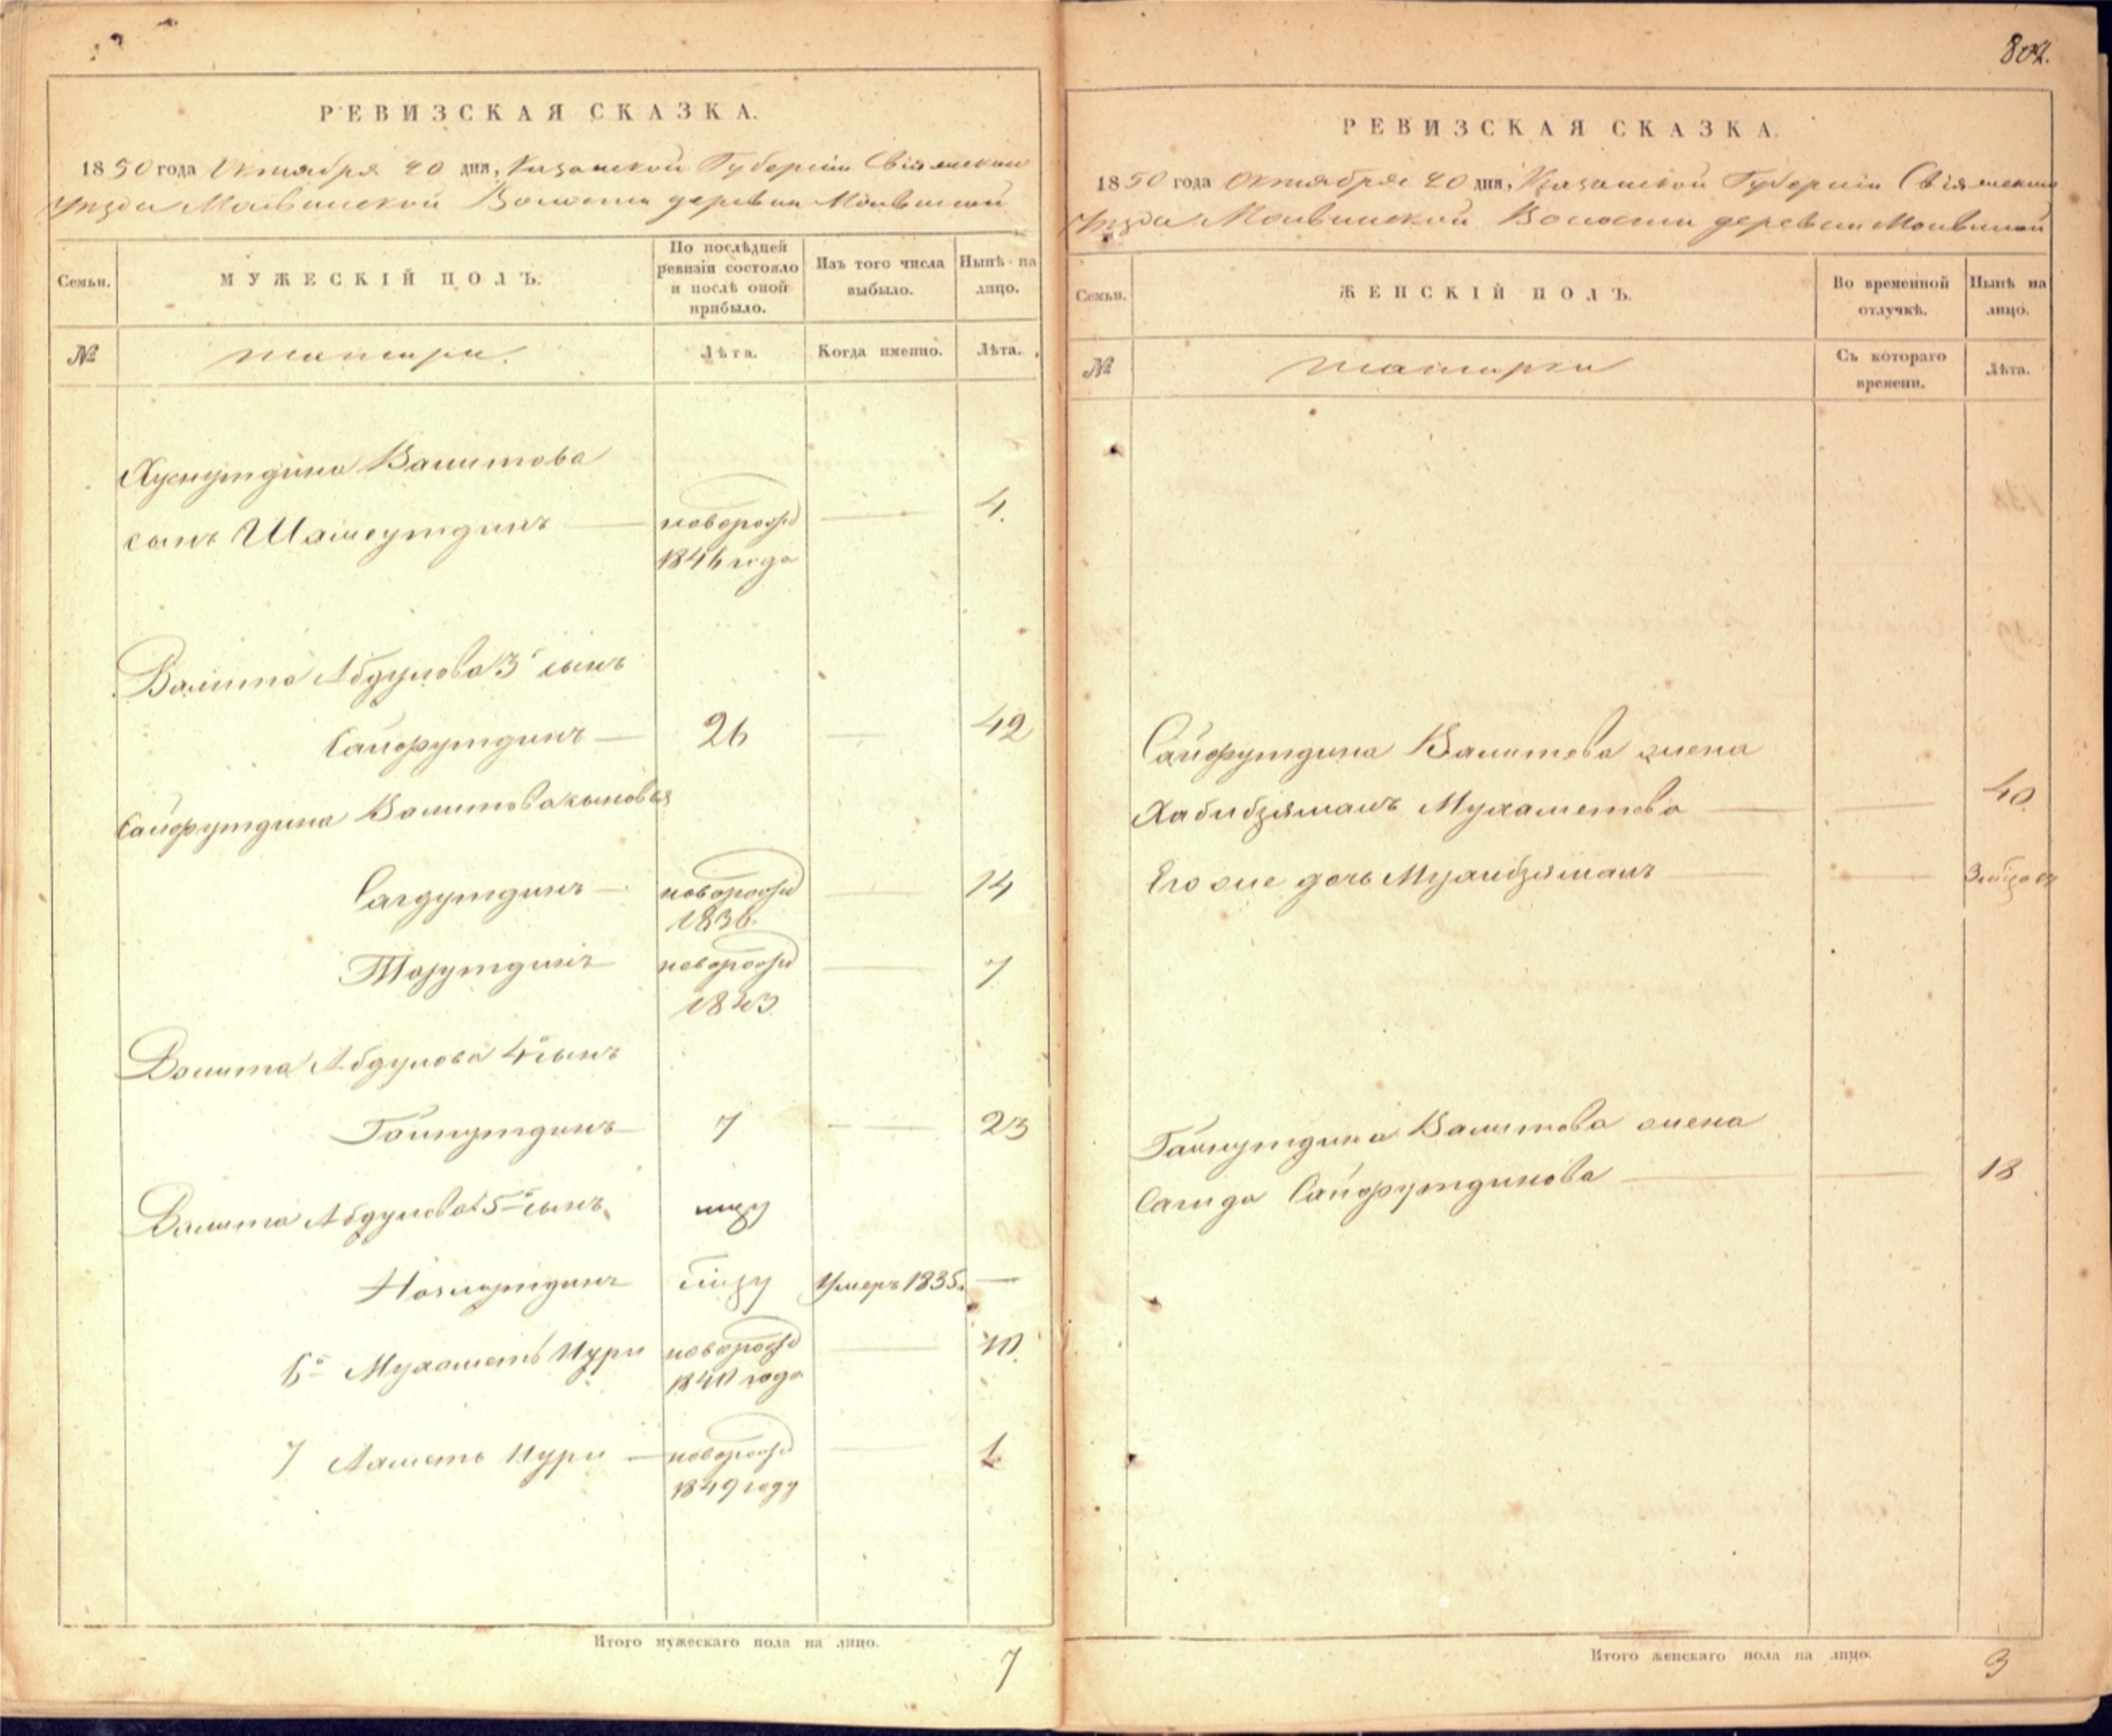 802.
РЕВИЗСКАЯ СКАЗКА.
1850 года Октября 20 дня, Казанской Губернiи Свiяжскаго
Уѣзда Молвинской Волости деревни Молвиной
Семьи.
МУЖЕСКIЙ ПОЛЪ.
По послѣдней ревизiи состояло и послѣ оной прибыло.
Изъ того числа выбыло.
Нынѣ на лицо.
№
татары.
Лѣта.
Когда именно.
Лѣта.
Хуснутдина Валитова
сынъ Шамсутдинъ — новорожд — 4.
1846 года
Валита Абдулова 3й сынъ
Сайфутдинъ — 26 — 42
Сайфутдина Валитова сыновья
Сагдутдинъ — новорожд — 14
1836.
новорожд — 7
1843
Валита Абдулова 4й сынъ
Гайнутдинъ — 7 — 23
Валита Абдулова 5й сынъ
Умеръ 1835. —
6й Мухаметь Нури новорожд — 10.
1840 года
7 Ахметь Нури — новорожд — 1
1849 году
Итого мужескаго пола на лицо.
7
РЕВИЗСКАЯ СКАЗКА.
1850 года Октября 20 дня, Казанской Губернiи Свiяжскаго
Уѣзда Молвинской Волости деревни Молвиной
Семьи.
ЖЕНСКIЙ ПОЛЪ.
Во временной отлучкѣ.
Нынѣ на лицо.
№
татарки
Съ котораго времени.
Лѣта.
Сайфутдина Валитова жена
Хабибзяманъ Мухаметова — — 40.
Его же дочь Мухибзяманъ — —
Гайнутдина Валитова жена
Сагида Сайфутдинова — — 18
Итого женскаго пола на лицо.
3